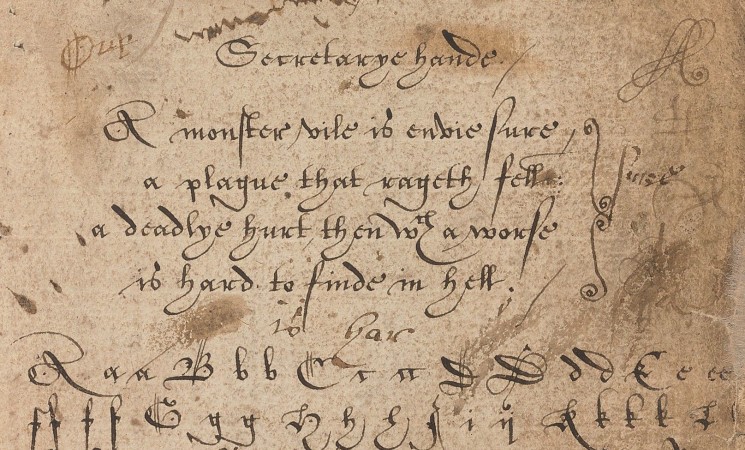 Our
Secretarye hande
A monster vile is envie sure
a plague that rageth fell: sure
a deadlye hurt then wch a worse
is hard to finde in hell.
is har
A a a B b b C c cc D D d d E e ee
ff ff G g g h h h I i ij K k k k l